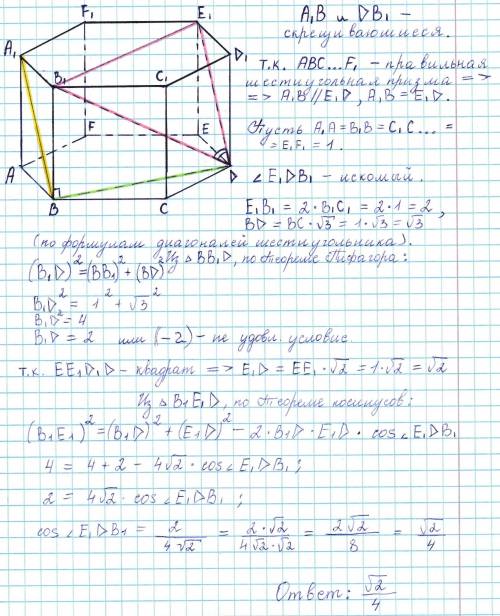 F₁ E₁
A₁ B₁ C₁ D₁
F E
A D
B C
A₁B и DB₁ –
скрещивающиеся.
т.к. ABC...F₁ – правильная
шестиугольная призма =>
=> A₁B // E₁D, A₁B = E₁D.
Пусть A₁A = B₁B = C₁C... =
= E₁F₁ = 1.
∠E₁DB₁ – искомый.
E₁B₁ = 2 · B₁C₁ = 2 · 1 = 2,
BD = BC · √3 = 1 · √3 = √3
(по формулам диагоналей шестиугольника).
Из △ BB₁D, по теореме Пифагора:
(B₁D)² = (BB₁)² + (BD)²
B₁D² = 1² + √3²
B₁D² = 4
B₁D = 2 или (-2) – не удовл. условие.
т.к. EE₁D₁D – квадрат => E₁D = EE₁ · √2 = 1 · √2 = √2
Из △ B₁E₁D, по теореме косинусов:
(B₁E₁)² = (B₁D)² + (E₁D)² – 2 · B₁D · E₁D · cos∠E₁DB₁
4 = 4 + 2 – 4√2 · cos∠E₁DB₁;
2 = 4√2 · cos∠E₁DB₁;
cos∠E₁DB₁ = 2/4√2 = 2·√2/4√2·√2 = 2√2/8 = √2/4
Ответ: √2/4